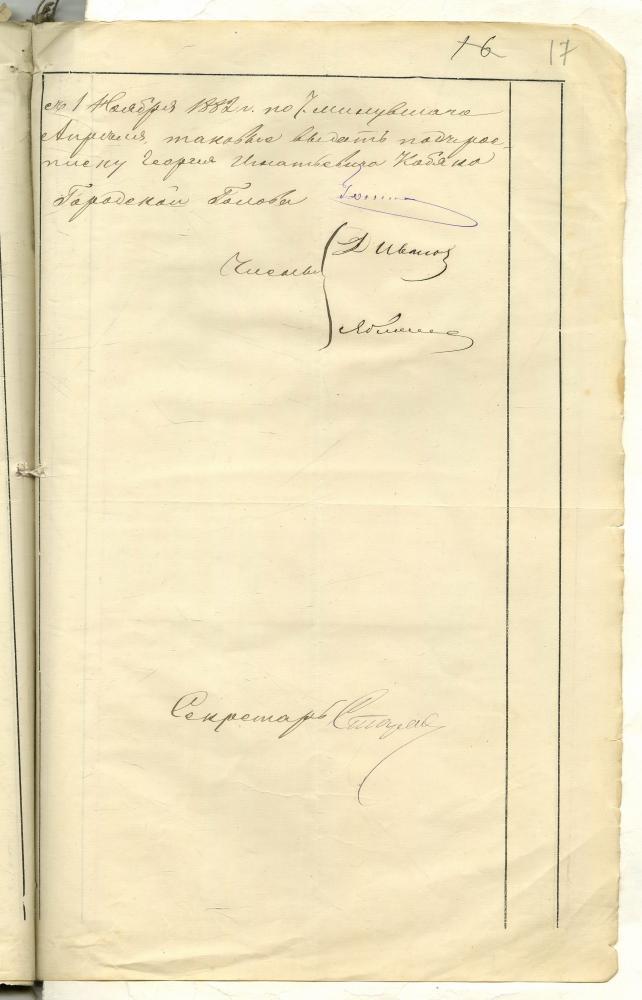 16 17
съ 1 Ноября 1882 г. по 7. минувшаго
Апреля, таковые выдать подъ рос-
писку Георгия Игнатьевича Кобяко
Городской Голова
Члены
Д Иванов
Секретарь